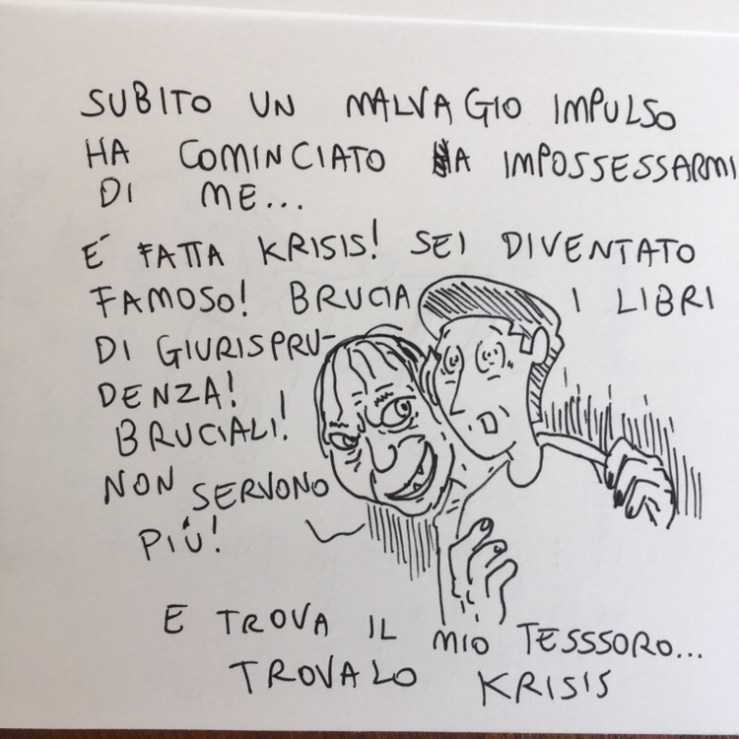 SUBITO UN MALVAGIO IMPULSO
HA COMINCIATO A IMPOSSESSARMI
DI ME...
E' FATTA KRISIS! SEI DIVENTATO
FAMOSO! BRUCIA I LIBRI
DI GIURISPRU-
DENZA!
BRUCIALI!
NON SERVONO
PIÙ!
E TROVA IL MIO TESSSORO...
TROVALO KRISIS